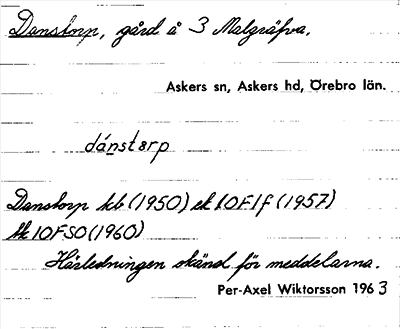 Danstorp, gård å 3 Malgräfva.
Askers sn, Askers hd, Örebro län.
dánstɘrp
Danstorp kb (1950) ek 10F1f (1957)
tk 10F SO (1960)
Härledningen okänd för meddelarna.
Per-Axel Wiktorsson 1963